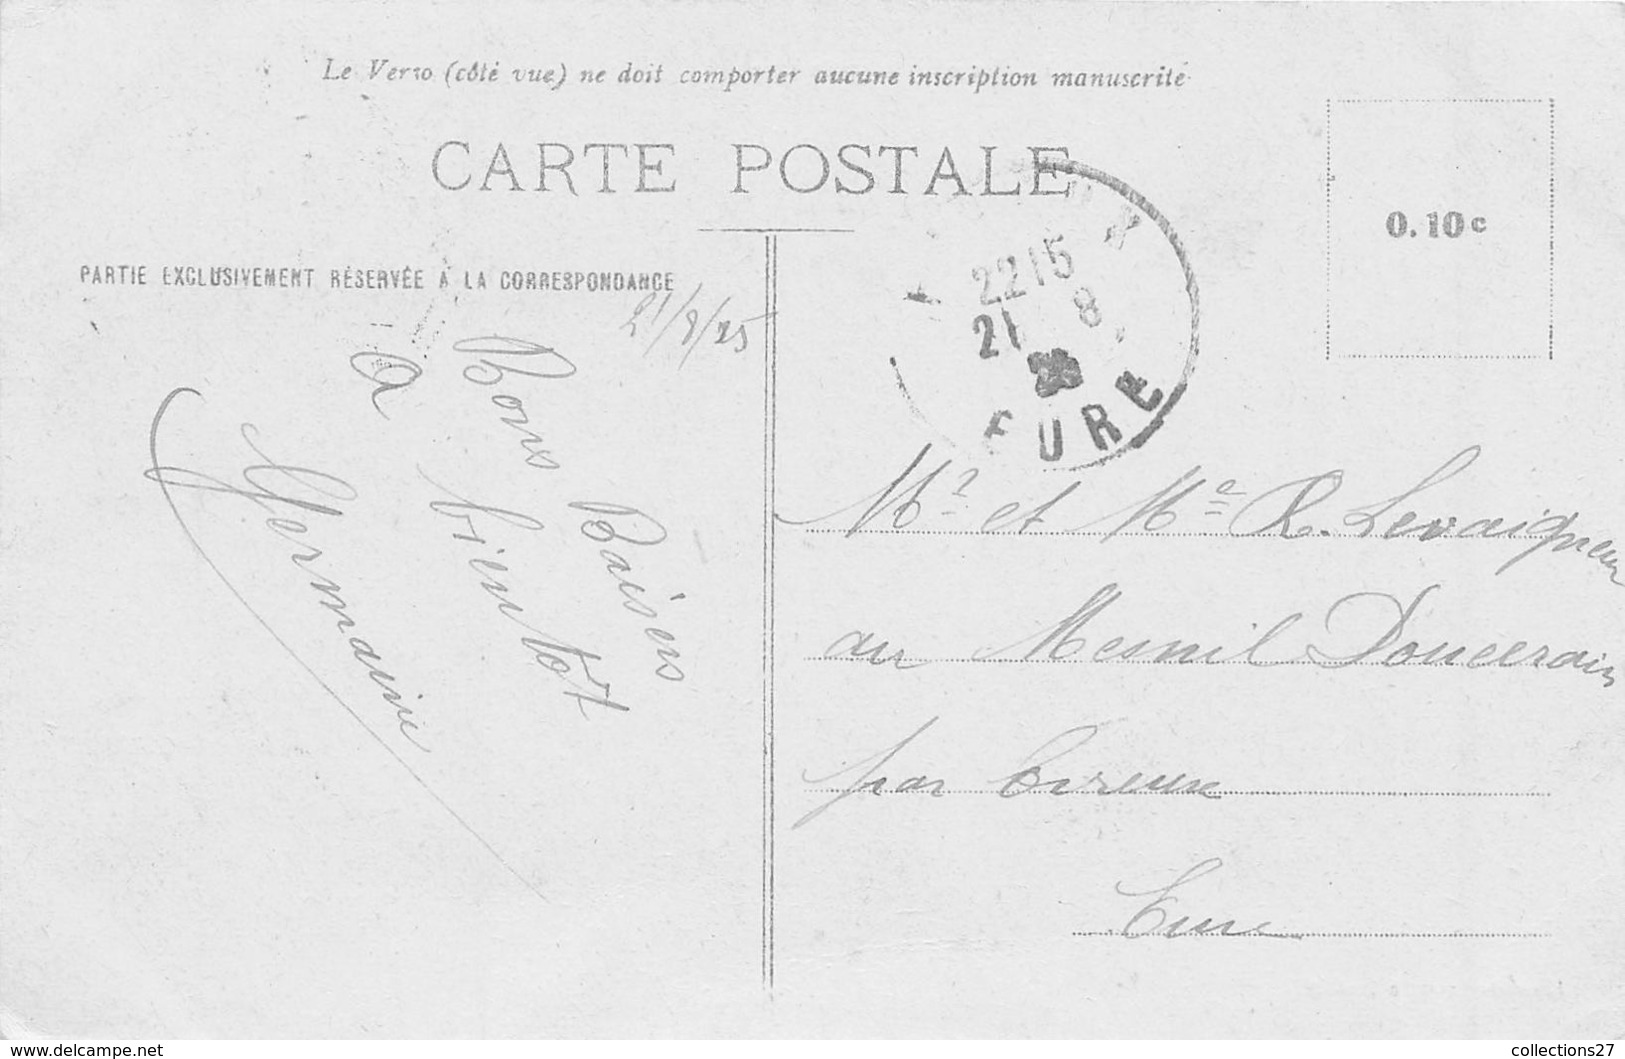 Le Verso (côté vue) ne doit comporter aucune inscription manuscrite
CARTE POSTALE
0.10c
PARTIE EXCLUSIVEMENT RÉSERVÉE À LA CORRESPONDANCE
21/8/25
Bons Baisers
a bientot
Germaine
2215
21 8
EURE
Mr et Me R. Levaigneur
au Mesnil Doucerain
par
Eure
www.delcampe.net
collections27